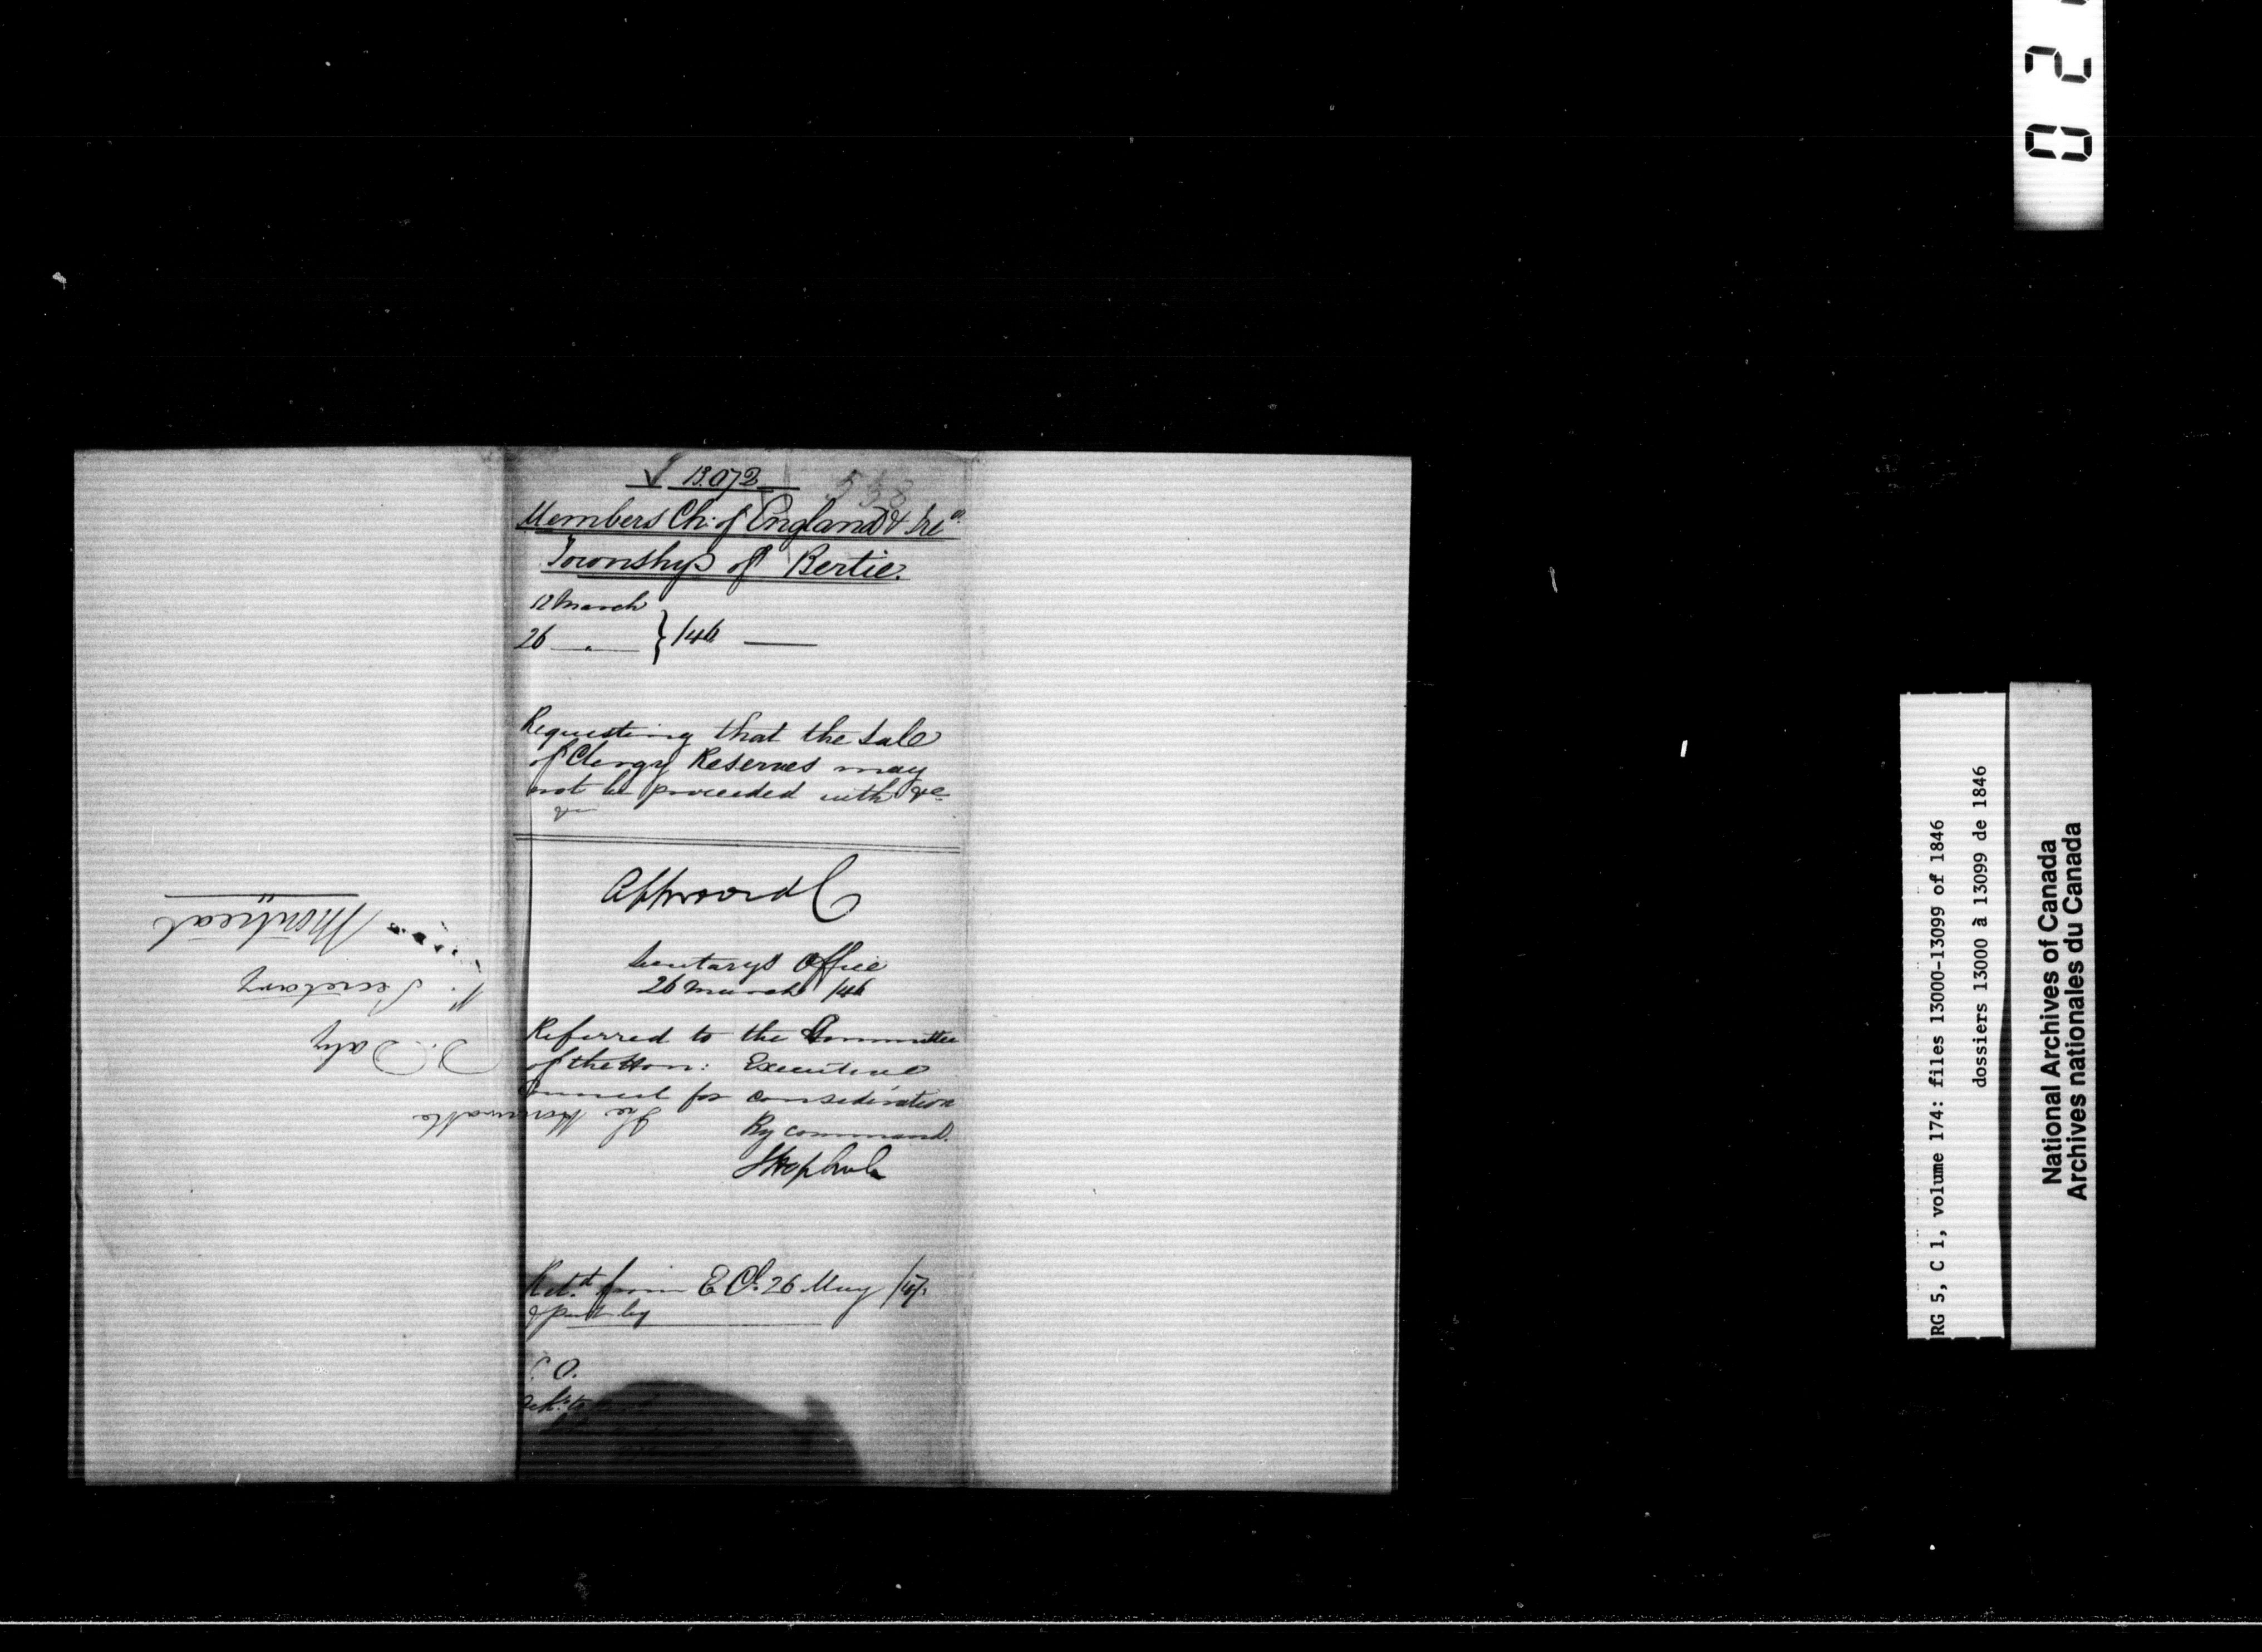 13.072
538
Members Ch: of England & Ire^d.
Township of Bertie.
12 March
26 " } /46
Requesting that the Sale
of Clergy Reserves may
not be proceeded with &c
&c
Secretarys Office
26 March /46
Referred to the Committee
of the Hon: Executive
Council for consideration
By command.
Ret.^d from E C. 26 May /47.
& put by
The Honorable
D. Daly
Secretary
Montreal
RG 5, C 1, volume 174: files 13000-13099 of 1846
dossiers 13000 à 13099 de 1846
National Archives of Canada
Archives nationales du Canada
0 2